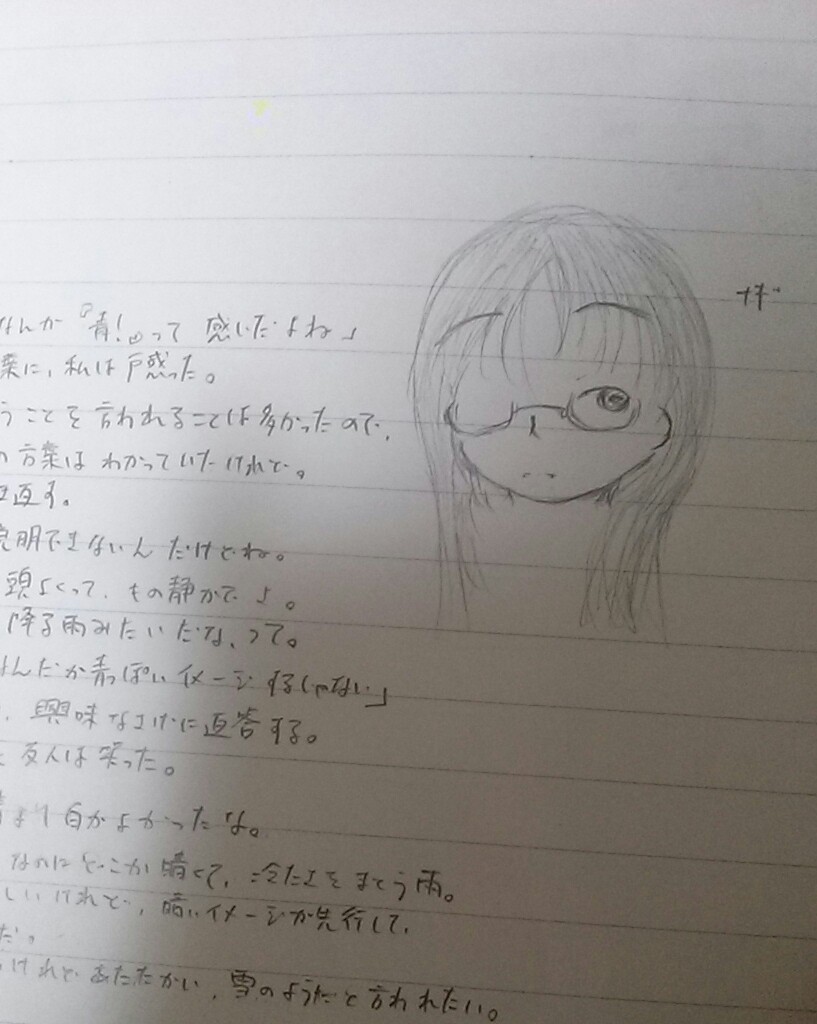 なんか『青!』って感じだよね」
葉に、私は戸惑った。
うことを言われることは多かったので、
の言葉はわかっていたけれど。
直す。
説明できないんだけどね。
頭よくって、もの静かでさ。
降る雨みたいだな、って。
なんだか青っぽいイメージするじゃない」
、興味なさげに返答する。
と友人は笑った。
青より白がよかったな。
なのにどこか暗くて、冷たさをまとう雨。
しいけれど、暗いイメージが先行して、
だ。
けれどあたたかい、雪のようだと言われたい。